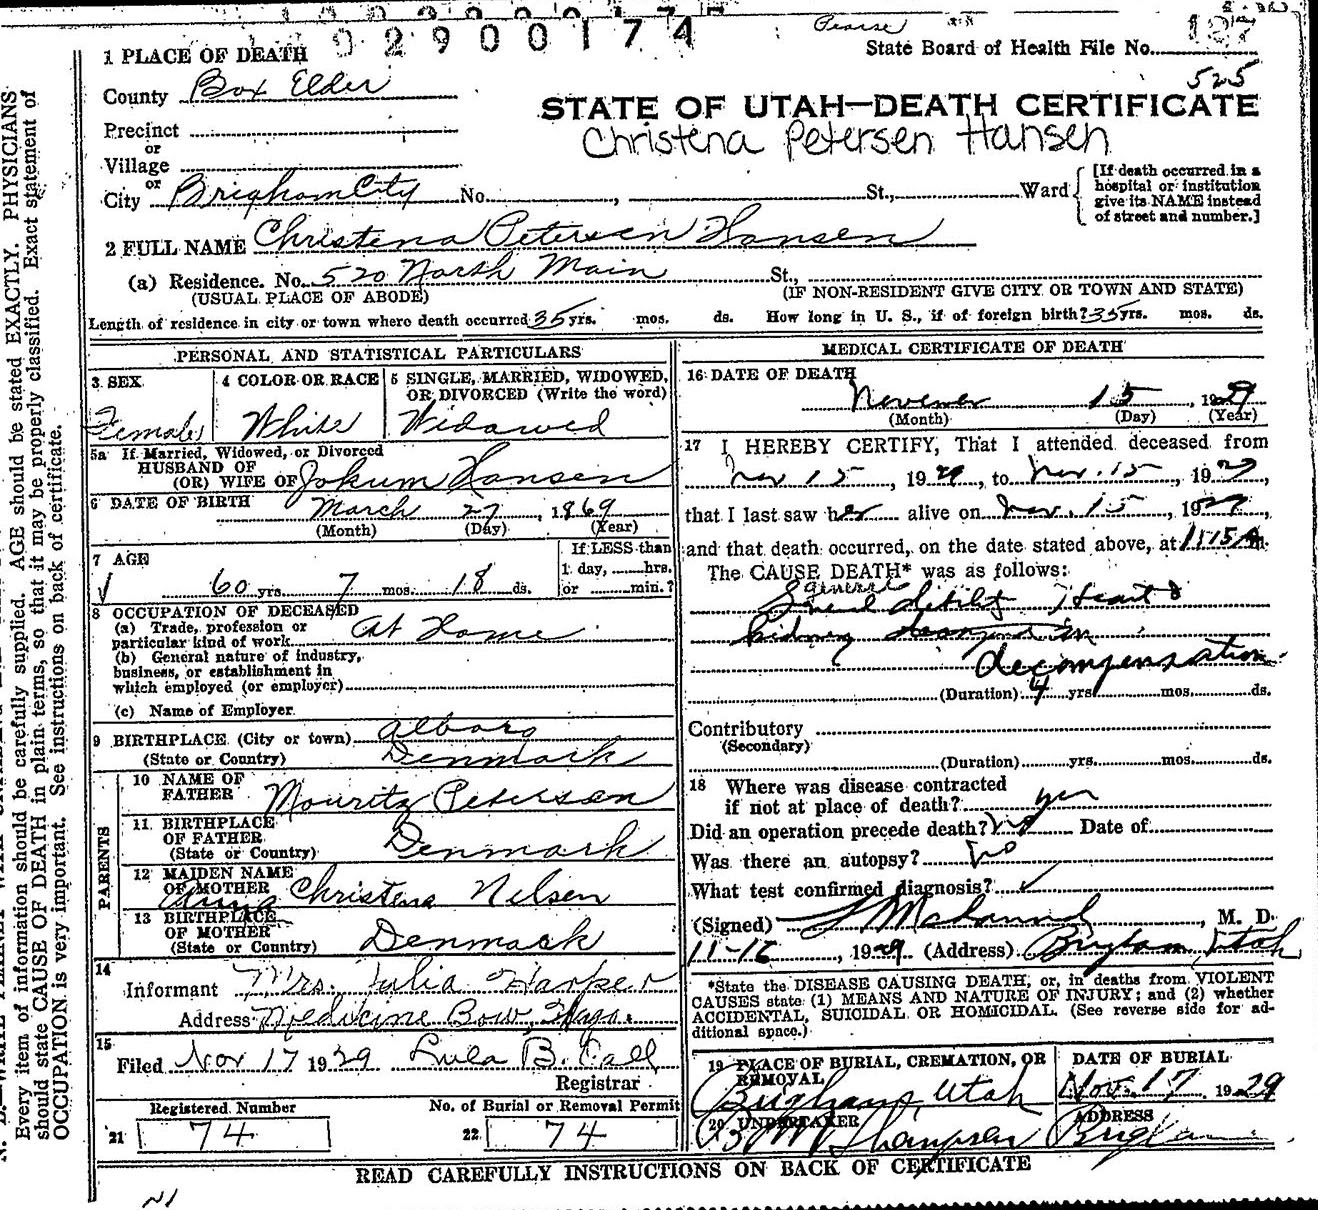 02900174
State Board of Health File No. 187
525
1 PLACE OF DEATH
County Box Elder
STATE OF UTAH—DEATH CERTIFICATE
Christena Petersen Hansen
Precinct
or
Village
or
City Brigham City No. , St., Ward
[If death occurred in a
hospital or institution
give its NAME instead
of street and number.]
2 FULL NAME Christena Petersen Hansen
(a) Residence. No. 520 North Main St.,
(USUAL PLACE OF ABODE) (IF NON-RESIDENT GIVE CITY OR TOWN AND STATE)
Length of residence in city or town where death occurred 35 yrs. mos. ds. How long in U. S., if of foreign birth? 35 yrs. mos. ds.
PERSONAL AND STATISTICAL PARTICULARS
3 SEX
Female
4 COLOR OR RACE
White
5 SINGLE, MARRIED, WIDOWED,
OR DIVORCED (Write the word)
Widowed
5a If Married, Widowed, or Divorced
HUSBAND OF
(OR) WIFE OF Jokum Hansen
6 DATE OF BIRTH
March 27, 1869
(Month) (Day) (Year)
7 AGE
60 yrs. 7 mos. 18 ds.
If LESS than
1 day, hrs.
or min.?
8 OCCUPATION OF DECEASED
(a) Trade, profession or
particular kind of work At Home
(b) General nature of industry,
business, or establishment in
which employed (or employer)
(c) Name of Employer
9 BIRTHPLACE (City or town) Alborg
(State or Country) Denmark
PARENTS
10 NAME OF
FATHER Mouritz Petersen
11 BIRTHPLACE
OF FATHER
(State or Country) Denmark
12 MAIDEN NAME
OF MOTHER Christena Nelsen
13 BIRTHPLACE
OF MOTHER
(State or Country) Denmark
14
Informant Mrs. Julia Harper
Address Medicine Bow, Wyo.
15
Filed Nov 17 1929 Lula B. Call
Registrar
Registered Number
21 74
No. of Burial or Removal Permit
22 74
MEDICAL CERTIFICATE OF DEATH
16 DATE OF DEATH
15, 1929
(Month) (Day) (Year)
17 I HEREBY CERTIFY, That I attended deceased from
Nov 15, 1929, to Nov. 15, 1929,
that I last saw her alive on Nov. 15, 1929,
and that death occurred, on the date stated above, at 1:15 A m.
The CAUSE DEATH* was as follows:
general
debility Heart &
Kidney
decompensation
(Duration) 4 yrs. mos. ds.
Contributory
(Secondary)
(Duration) yrs. mos. ds.
18 Where was disease contracted
if not at place of death? yes
Did an operation precede death? no Date of
Was there an autopsy? no
What test confirmed diagnosis?
(Signed) , M. D.
11-16, 1929 (Address) Brigham, Utah
*State the DISEASE CAUSING DEATH, or, in deaths from VIOLENT
CAUSES state (1) MEANS AND NATURE OF INJURY; and (2) whether
ACCIDENTAL, SUICIDAL OR HOMICIDAL. (See reverse side for ad-
ditional space.)
19 PLACE OF BURIAL, CREMATION, OR
REMOVAL
Brigham, Utah
DATE OF BURIAL
Nov. 17 1929
20 UNDERTAKER
Thompsen
ADDRESS
Brigham
READ CAREFULLY INSTRUCTIONS ON BACK OF CERTIFICATE
Every item of information should be carefully supplied. AGE should be stated EXACTLY. PHYSICIANS
should state CAUSE OF DEATH in plain terms, so that it may be properly classified. Exact statement of
OCCUPATION is very important. See instructions on back of certificate.